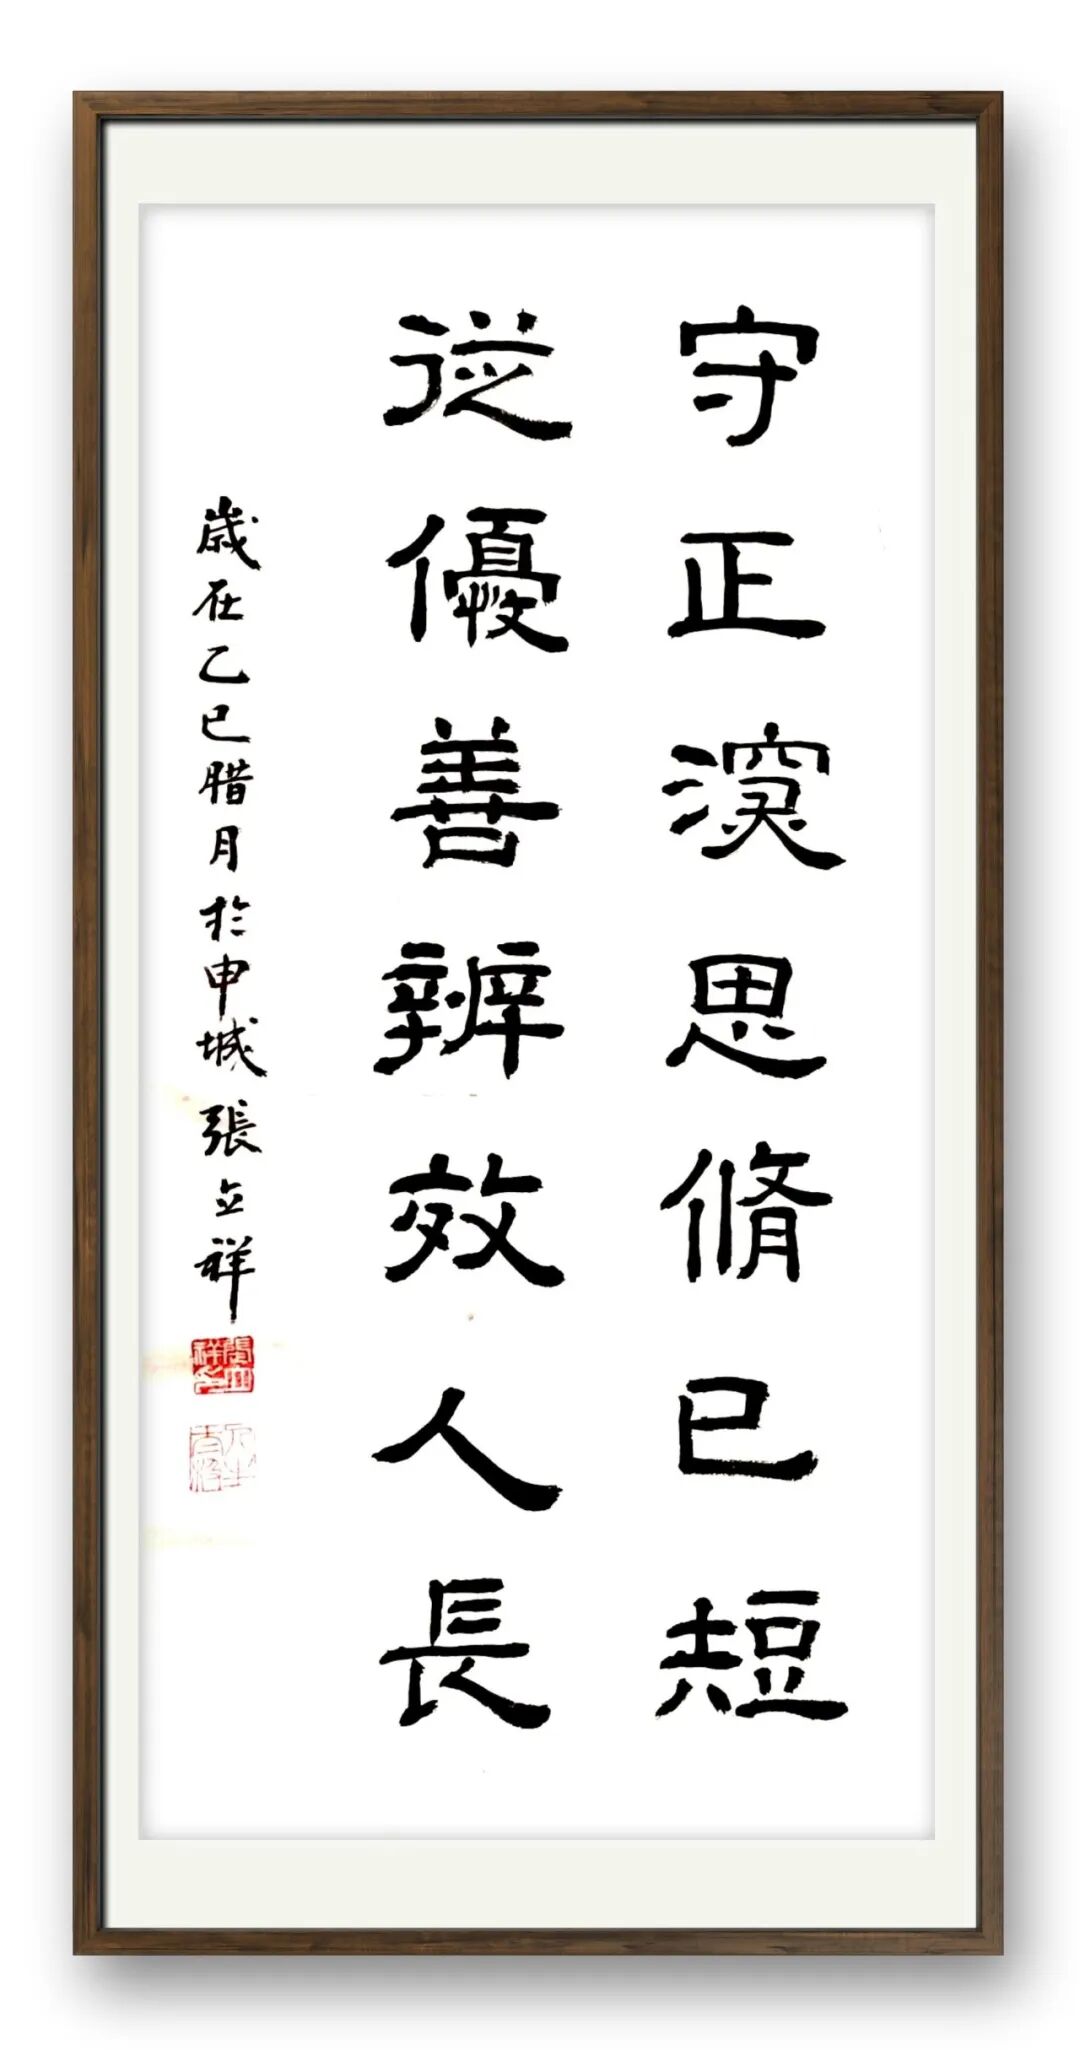 守正深思脩己短
從優善辨效人長
歲在乙巳腊月於申城張立祥